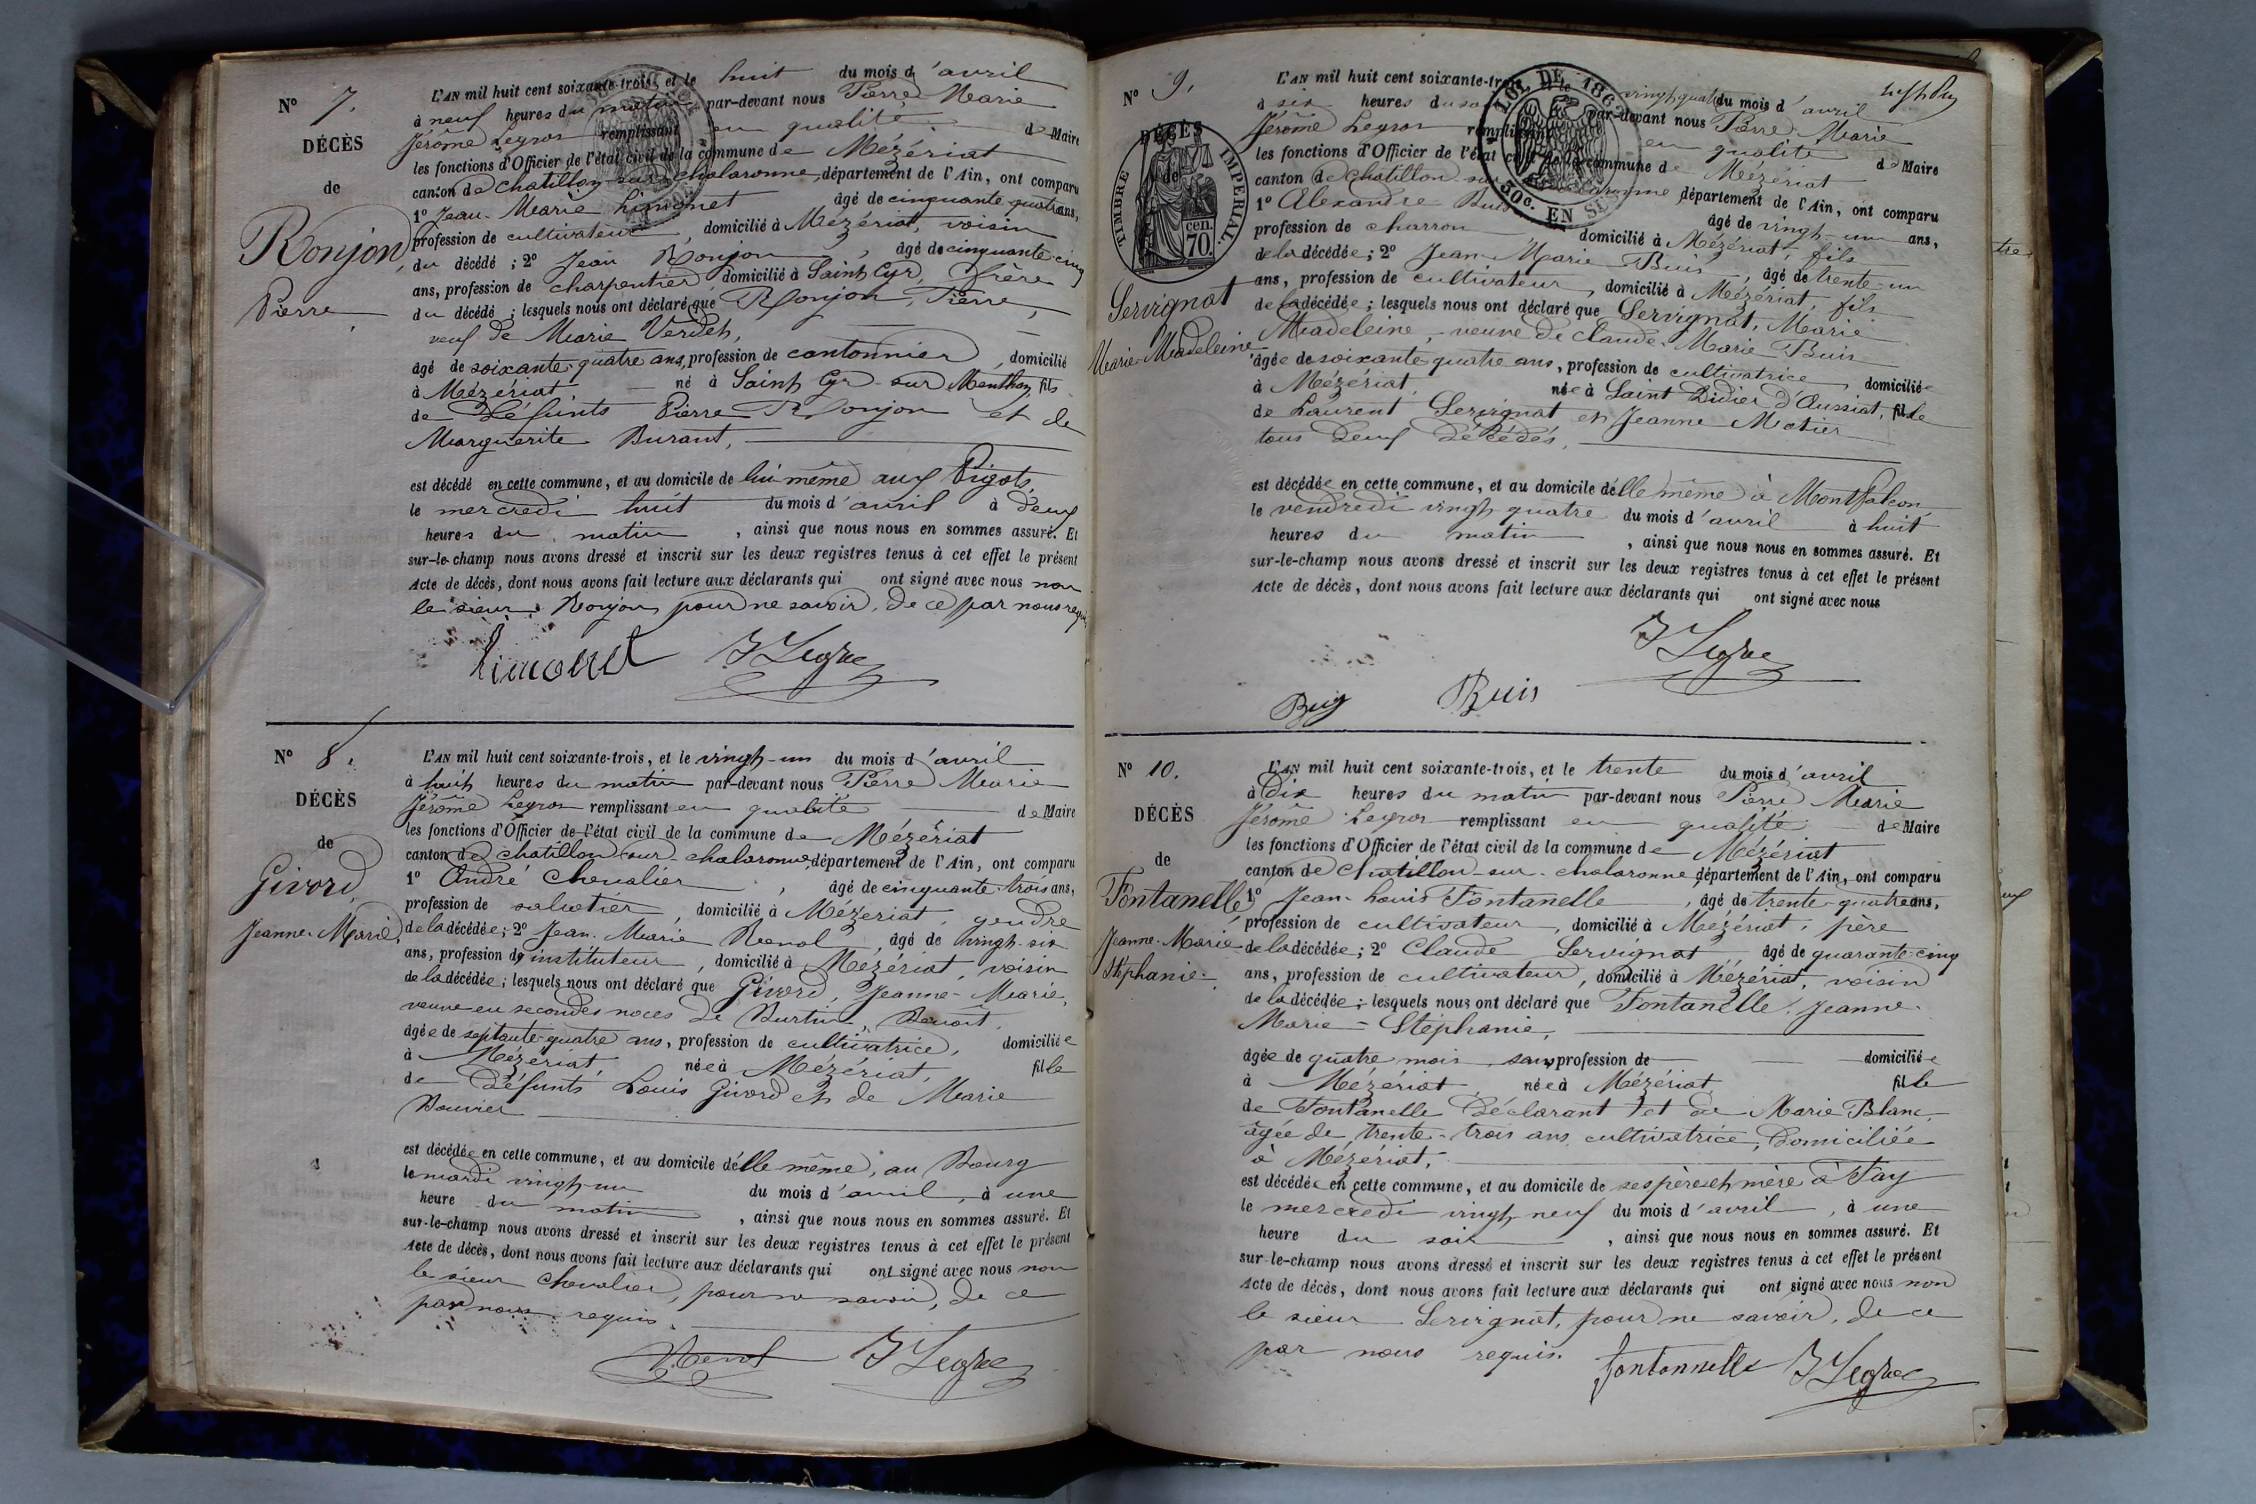 N° 7.
DÉCÈS
de
Ronjon,
Pierre
L'AN mil huit cent soixante-trois, et le huit du mois d'avril
à neuf heures du matin par-devant nous Pierre Marie
Jérôme Legros remplissant en qualité de Maire
les fonctions d'Officier de l'état civil de la commune de Mézériat
canton de chatillon sur chalaronne, département de l'Ain, ont comparu
1° Jean-Marie Limonet âgé de cinquante-quatre ans,
profession de cultivateur, domicilié à Mézériat, voisin
du décédé ; 2° Jean Ronjon, âgé de cinquante-cinq
ans, profession de charpentier domicilié à Saint Cyr, frère
du décédé ; lesquels nous ont déclaré que Ronjon, Pierre,
veuf de Marie Verdet,
âgé de soixante-quatre ans, profession de cantonnier, domicilié
à Mézériat né à Saint Cyr-sur Menthon, fils
de défunts Pierre Ronjon et de
Marguerite Durant,
est décédé en cette commune, et au domicile de lui même aux Pigots,
le mercredi huit du mois d'avril à deux
heures du matin, ainsi que nous nous en sommes assuré. Et
sur-le-champ nous avons dressé et inscrit sur les deux registres tenus à cet effet le présent
Acte de décès, dont nous avons fait lecture aux déclarants qui ont signé avec nous non
le sieur Ronjon pour ne savoir, de ce par nous requis
Limonet J Legros
N° 8.
DÉCÈS
de
Givord,
Jeanne-Marie,
L'AN mil huit cent soixante-trois, et le vingt-un du mois d'avril
à huit heures du matin par-devant nous Pierre Marie
Jérôme Legros remplissant en qualité de Maire
les fonctions d'Officier de l'état civil de la commune de Mézériat
canton de chatillon-sur-chalaronne, département de l'Ain, ont comparu
1° André Chevalier, âgé de cinquante-trois ans,
profession de sabotier, domicilié à Mézeriat, gendre
de la décédée ; 2° Jean-Marie Renol, âgé de vingt-six
ans, profession d'instituteur, domicilié à Mézériat, voisin
de la décédée ; lesquels nous ont déclaré que Givord, Jeanne-Marie,
veuve en secondes noces de Burtin, Benoit,
âgée de septante-quatre ans, profession de cultivatrice, domiciliée
à Mézériat, née à Mézériat, fille
de défunts Louis Givord et de Marie
Bouvier
est décédée en cette commune, et au domicile d'elle même, au Bourg
le mardi vingt-un du mois d'avril, à une
heure du matin, ainsi que nous nous en sommes assuré. Et
sur-le-champ nous avons dressé et inscrit sur les deux registres tenus à cet effet le présent
Acte de décès, dont nous avons fait lecture aux déclarants qui ont signé avec nous non
le sieur Chevalier, pour ne savoir, de ce
par nous requis.
Renol J Legros
N° 9.
DÉCÈS
de
TIMBRE IMPÉRIAL
70 cen.
Servignat
Marie-Madeleine
LOI DE 1862
50c. EN SUS
L'AN mil huit cent soixante-trois, et le vingt quatre du mois d'avril
à six heures du soir par-devant nous Pierre-Marie
Jérôme Legros remplissant en qualité de Maire
les fonctions d'Officier de l'état civil de la commune de Mézériat
canton de chatillon sur chalaronne, département de l'Ain, ont comparu
1° Alexandre Buis âgé de vingt-un ans,
profession de charron domicilié à Mézériat, fils
de la décédée ; 2° Jean-Marie Buis, âgé de trente-un
ans, profession de cultivateur, domicilié à Mézériat, fils
de la décédée ; lesquels nous ont déclaré que Servignat, Marie
Madeleine, veuve de Claude-Marie Buis
âgée de soixante-quatre ans, profession de cultivatrice, domiciliée
à Mézériat, née à Saint Didier d'Aussiat, fille
de Laurent Servignat et Jeanne Matier
tous deux décédés,
est décédée en cette commune, et au domicile d'elle même à Montfalcon,
le vendredi vingt quatre du mois d'avril à huit
heures du matin, ainsi que nous nous en sommes assuré. Et
sur-le-champ nous avons dressé et inscrit sur les deux registres tenus à cet effet le présent
Acte de décès, dont nous avons fait lecture aux déclarants qui ont signé avec nous
J Legros
Buis
N° 10.
DÉCÈS
de
Fontanelle,
Jeanne-Marie
Stéphanie.
L'AN mil huit cent soixante-trois, et le trente du mois d'avril
à Dix heures du matin par-devant nous Pierre Marie
Jérôme Legros remplissant en qualité de Maire
les fonctions d'Officier de l'état civil de la commune de Mézériat
canton de Chatillon-sur-chalaronne, département de l'Ain, ont comparu
1° Jean-Louis Fontanelle, âgé de trente-quatre ans,
profession de cultivateur, domicilié à Mézériat, père
de la décédée ; 2° Claude Servignat âgé de quarante-cinq
ans, profession de cultivateur, domicilié à Mézériat, voisin
de la décédée ; lesquels nous ont déclaré que Fontanelle, Jeanne-
Marie-Stéphanie,
âgée de quatre mois, sans profession de domiciliée
à Mézériat née à Mézériat fille
de Fontanelle déclarant et de Marie Blanc,
âgée de trente-trois ans, cultivatrice, domiciliée
à Mézériat,
est décédée en cette commune, et au domicile de ses père et mère à Fay
le mercredi vingt neuf du mois d'avril, à une
heure du soir, ainsi que nous nous en sommes assuré. Et
sur-le-champ nous avons dressé et inscrit sur les deux registres tenus à cet effet le présent
Acte de décès, dont nous avons fait lecture aux déclarants qui ont signé avec nous non
le sieur Servignat, pour ne savoir, de ce
par nous requis. fontonnelle J Legros